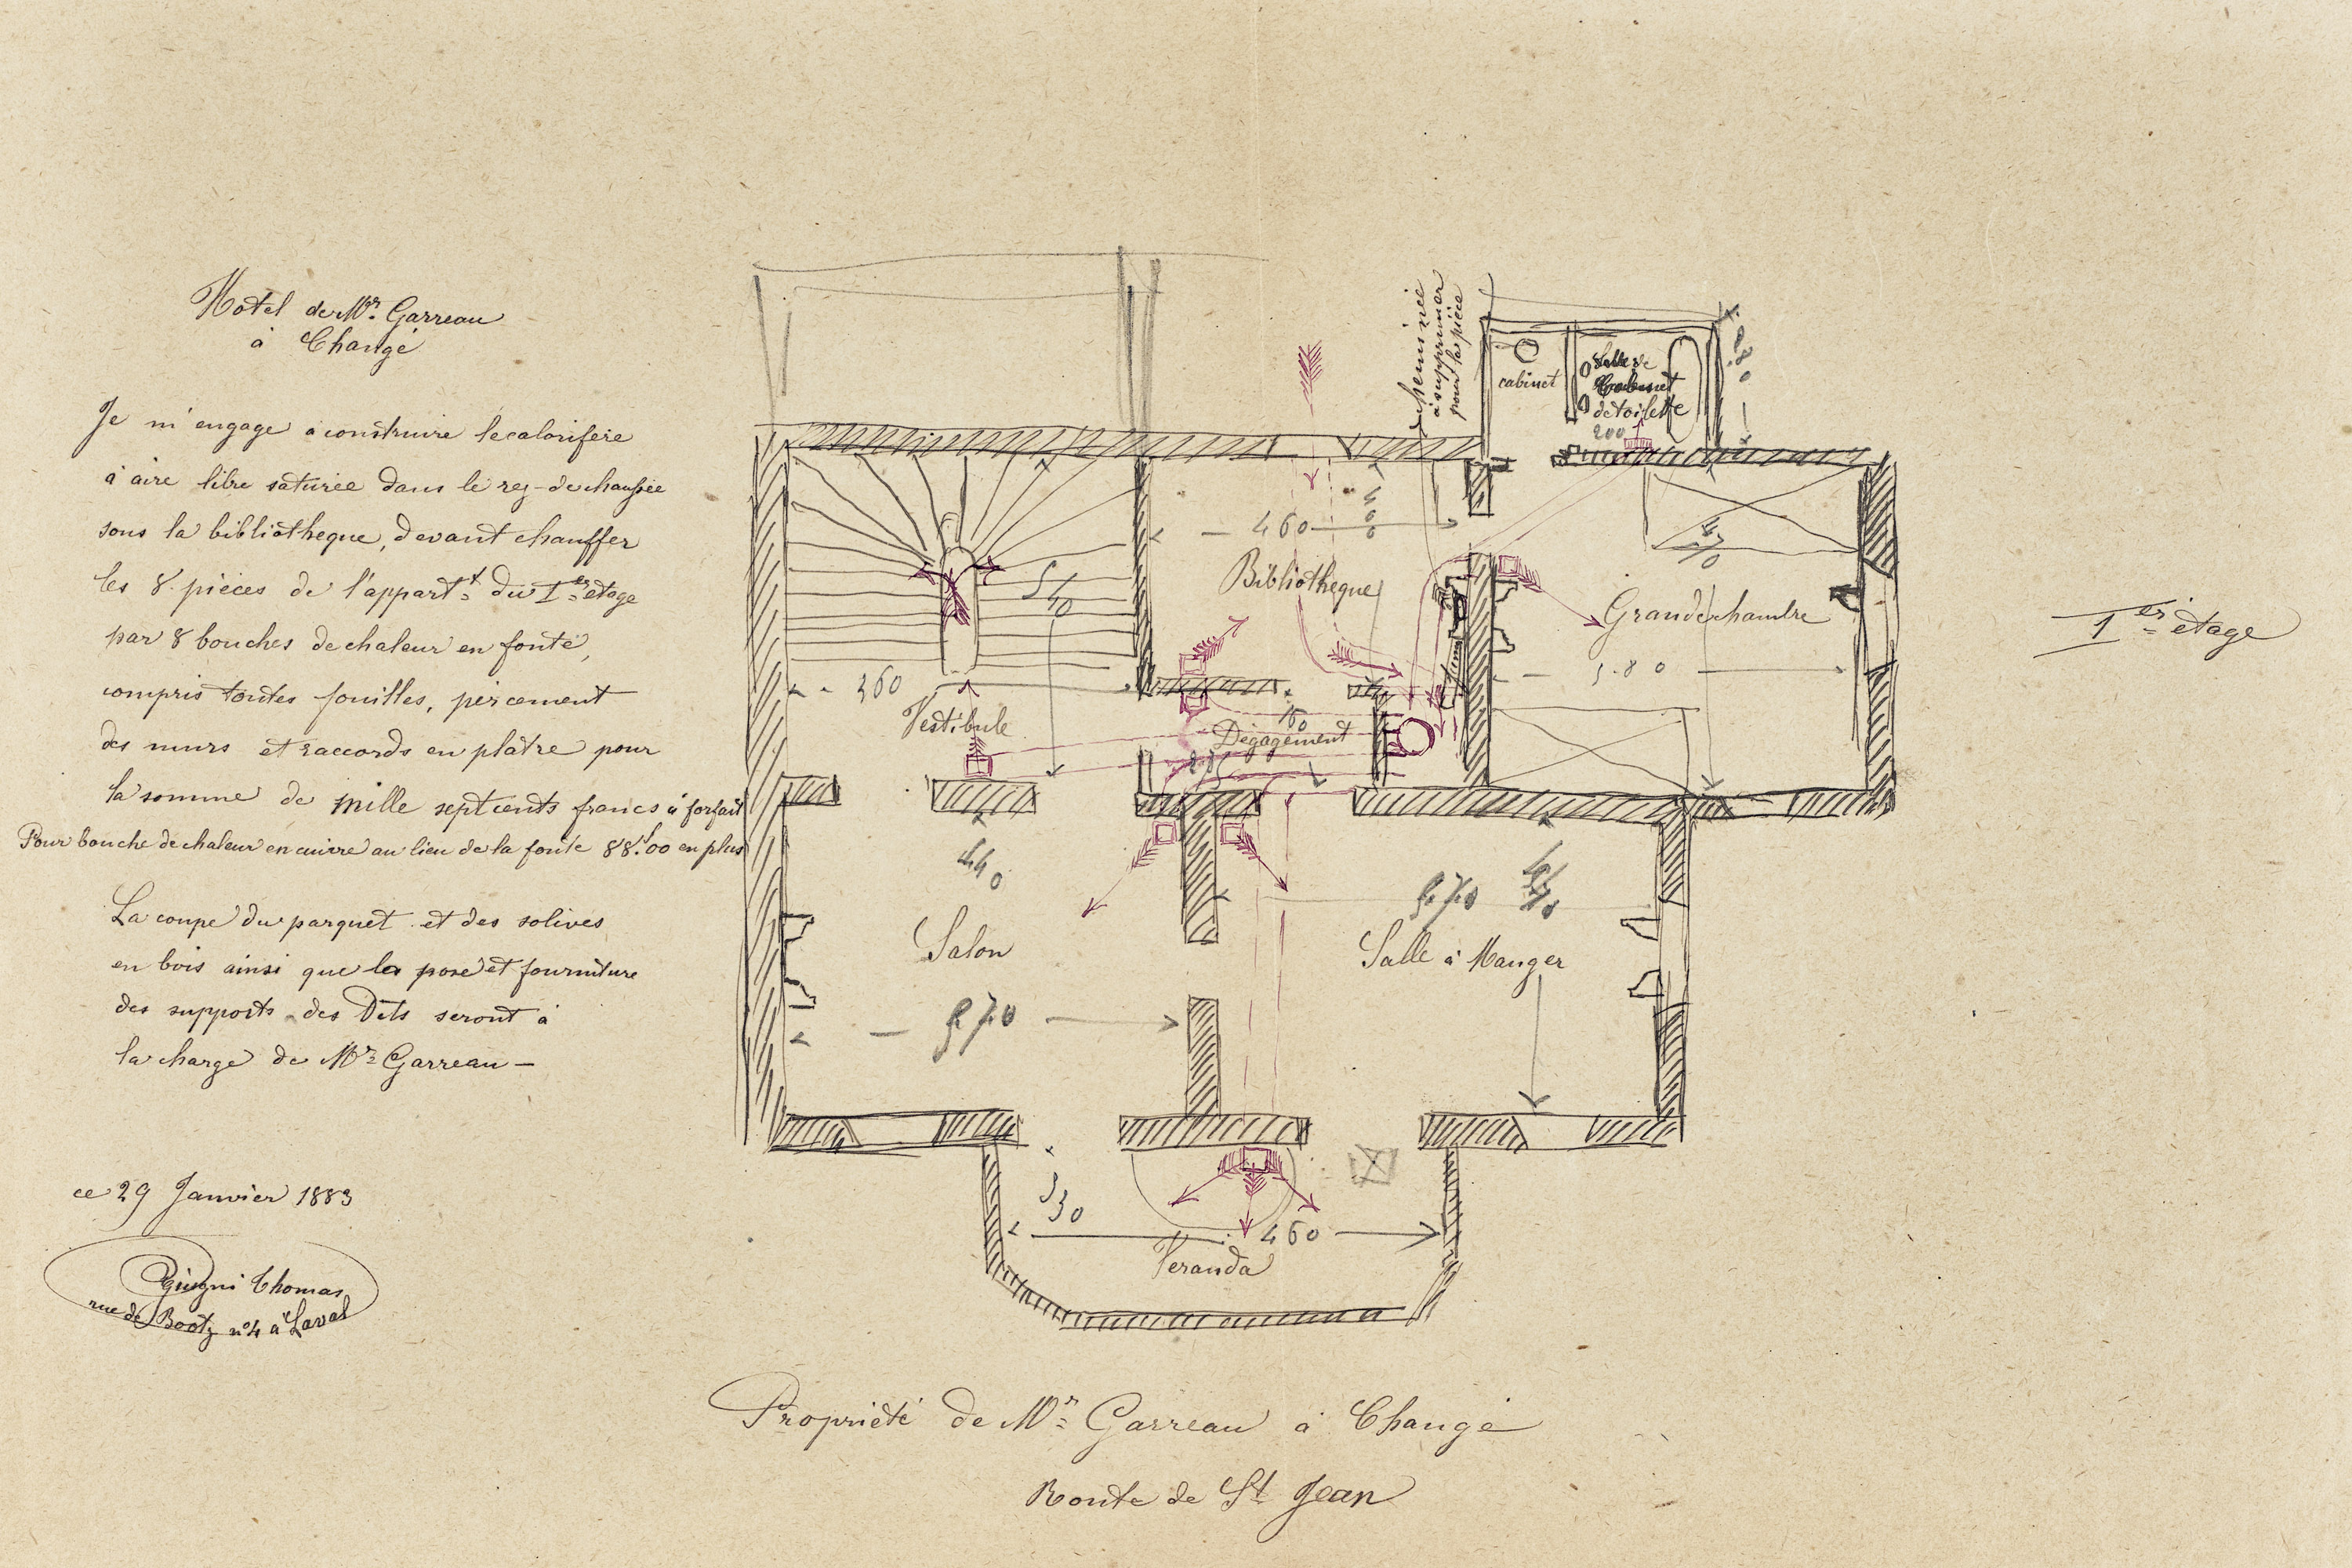 Hotel de Mr. Garreau
à Changé
Je m'engage a construire le calorifère
à aire libre saturée dans le rez-de chaussée
sous la bibliotheque, devant chauffer
les 8 pièces de l'appartt du 1er étage
par 8 bouches de chaleur en fonte,
compris toutes fouilles, percement
des murs et raccords en plâtre pour
la somme de mille sept cents francs à forfait
Pour bouche de chaleur en cuivre au lieu de la fonte 88f.00 en plus
La coupe du parquet et des solives
en bois ainsi que la pose et fourniture
des supports des Dets seront à
la charge de Mr Garreau -
ce 29 Janvier 1883
Thomas
rue de Bootz n°4 à Laval
cheminée
à supprimer
pour la pièce
cabinet
Salle de
Cabinet
de toilette
200
460
400
Bibliothèque
540
Grande chambre
5.80
360
Vestibule
160
Dégagement
440
Salon
5.70
5.70
Salle à Manger
330
460
Veranda
1er étage
Propriété de Mr Garreau à Changé
Route de St Jean